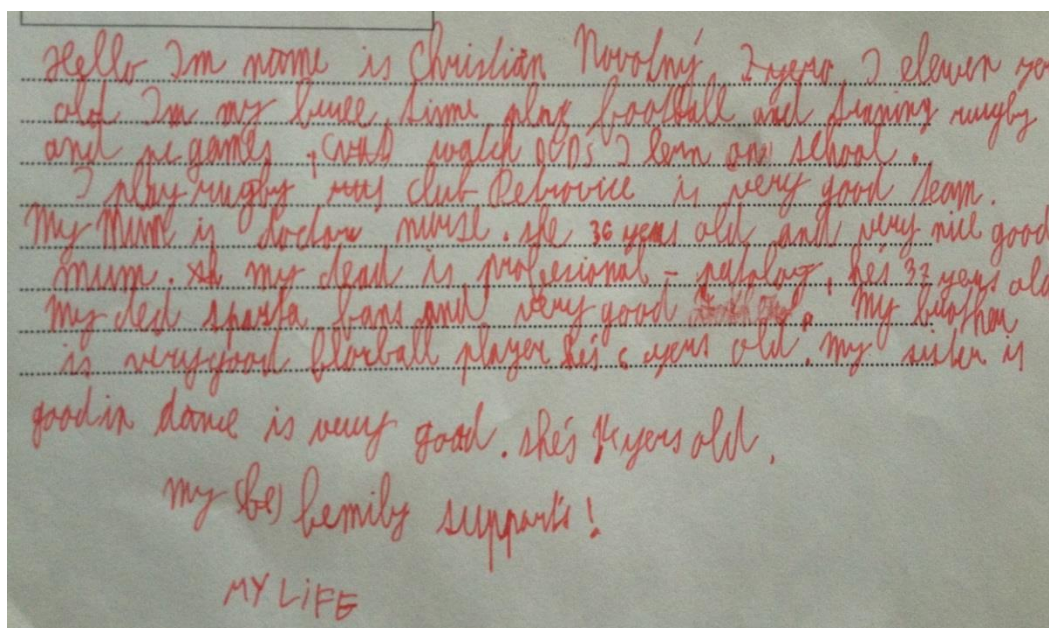 Hello Im name is Christian Novotný, I elewen ye
old Im my free time play football and traning rugby
and pc games, watch DVDs I lern on school.
I play rugby, club Petrovice is very good team.
My Mum is doctor nurse. she 36 years old and very nice good
mum. my dead is profesional - patolog, he's 37 years old
my ded sparta fans and very good . My brother
is verygood florball player he's 6 yers old. my sister is
good in dance is very good. she's 14 yers old.
my (be) femily supports!
MY LIFE